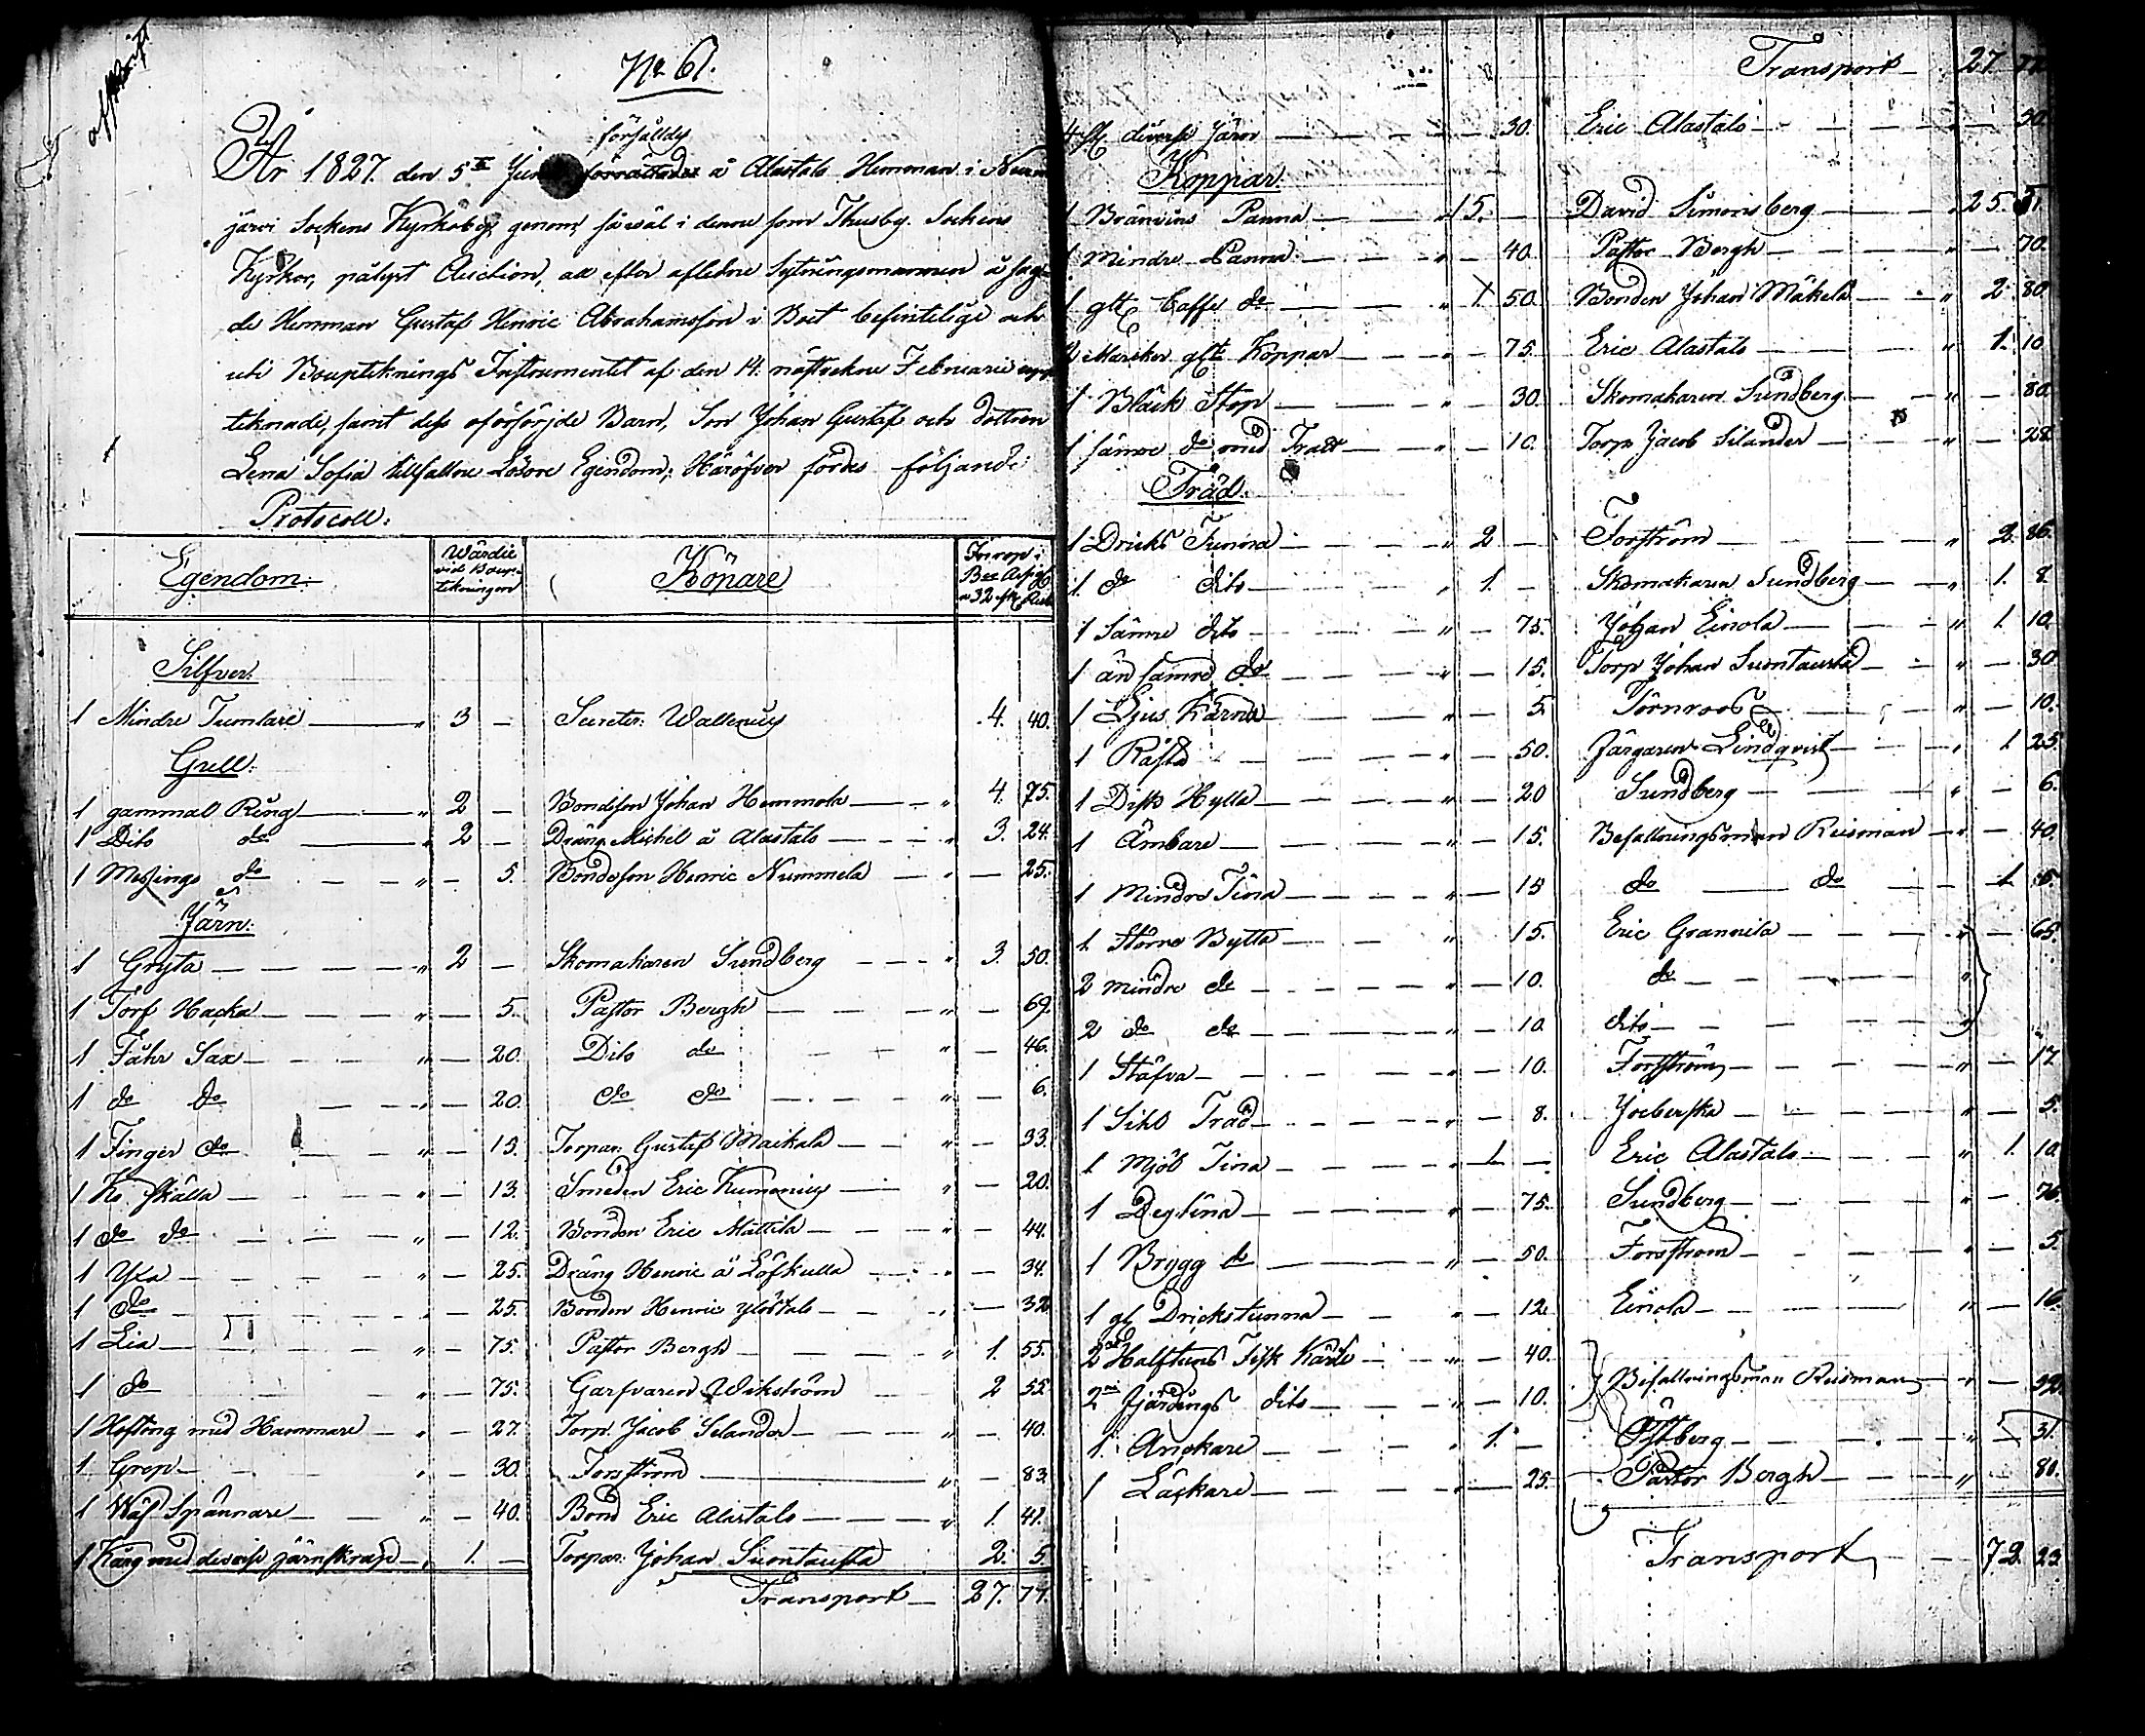 afskrift
No 61.
försåldes
År 1827 den 5te Juni förrättades å Alastalo Hemman i Nurm
järvi Sockens Kyrkoby, genom såwäl i denne som Thusby Sockens
Kyrkor, pålyst Auction, all efter aflidne Sytningsmannen å sag-
de Hemman Gustaf Henric Abrahamsson i Boet befintelige och
uti Bouptekningss Instrumentet af den 14. nästvekne Februarii upp
teknade, samt dess oförsörjde Barn, Son Johan Gustaf och dottren
Lena Sofia tillfallne Lösöre Egendom; Häröfver fördes följande
Protocoll:
Egendom Wärdie vid Boup- tekningen Köpare Inrop i Bco Assign a 32 sk Rub
Silfver.
1 Mindre Tumlare — " 3 — Secreter: Wallenius 4. 40.
Gull.
1 gammal Ring — " 2 — Bondeson Johan Hemmola — " 4. 75.
1 Dito do — " 2 — Dräng Michel å Alastalo — " 3. 24.
1 Messings do — " — 5. Bondeson Henric Nummela — " — 25.
Järn.
1 Gryta — " 2 — Skomakaren Sundberg — " 3. 50.
1 Torf Hacka — " — 5. Pastor Bergh — " — 69.
1 Fåhr Sax — " — 20. Dito do — " — 46.
1 do do — " — 20. do do — " — 6.
1 Finger do — " — 13. Torpar: Gustaf Maikala — " — 33.
1 Ko skälla — " — 13. Smeden Eric Kumenius — " — 20.
1 do do — " — 12. Bonden Eric Mattila — " — 44.
1 Yxa — " — 25. Dräng Henric å Löfkulla — " — 34.
1 do — " — 25. Bonden Henric Ylöstalo — " — 32
1 Lia — " — 75. Pastor Bergh — " 1. 55.
1 do — " — 75. Garfvaren Wikström — 2 55.
1 Hoftång med Hammare — " — 27. Torp. Jacob Selander — " — 40.
1 Grep — " — 30. Forsström — " — 83.
1 Wäf Spännare — " — 40. Bond Eric Alastalo — " 1. 41.
1 Korg med diverse järnskrap — " 1. — Torpar: Johan Suontausta 2. 5.
Transport — 27. 77.
Transport — 27. 77.
4 st diverse Järn — " — 30. Eric Alastalo — " — 50.
Koppar.
1 Bränvins Panna — " 15. — David Simonsberg — " 25. 5.
1 Mindre Panna — " — 40. Pastor Bergh — " — 70.
1 glt Caffe do — " 1. 50. Bonden Johan Mäkelä — " 2. 80.
2 Marker glt Koppar — " — 75. Eric Alastalo — " 1. 10
1 Bläck Stop — " — 30. Skomakaren Sundberg — " — 80.
1 sämre do med Tratt — " — 10. Torp. Jacob Silander — " — 28.
Träd.
1 Dricks Tunna — " 2 — Forström — " 2. 86.
1. do dito — " 1. — Skomakaren Sundberg — " 1. 8.
1 Sämre dito — " — 75. Johan Einola — " 1. 10.
1 än sämre do — " — 15. Torp Johan Suontausta — " — 30
1 Ljus Kärna — " — 5. Törnroos — " — 10.
1 — " — 50. Färgaren Lindqvist — " 1. 25.
1 Disk Hylla — " — 20 Sundberg — " — 6.
1 Ämbare — " — 15. Befallningsman Reisman — " — 40.
1 Mindre Tina — " — 15 do — do — 1. 5.
1. Större Bytta — " 15. Eric Grannila — " — 65.
2 mindre do — " — 10. do — "
2 do do — " — 10. dito — "
1 Stäfva — " — 10. Forsström — " — 17
1 Sikt Tråd — " — 8. — " — 5.
1 Mjöl Tina — " 1. — Eric Alastalo — " 1. 10
1 Degtina — " — 75. Sundberg — " — 76.
1 Brygg do — " — 50. Forsström — " — 5.
1 gl Drickstunna — " — 12. Einola — " — 16.
2 Halftuns Fisk Kärle — " — 40.
2 fjärdings dito — " — 10. Befallningsman Reisman — " — 32.
1. Anckare — " 1. — Östberg — " — 31.
1 Läckare — " — 25. Pastor Bergh — " — 80.
Transport — 72. 23.